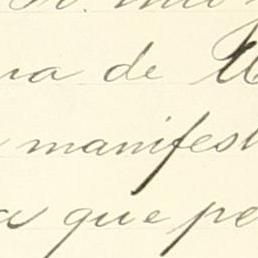 va de
manifest
a que pe